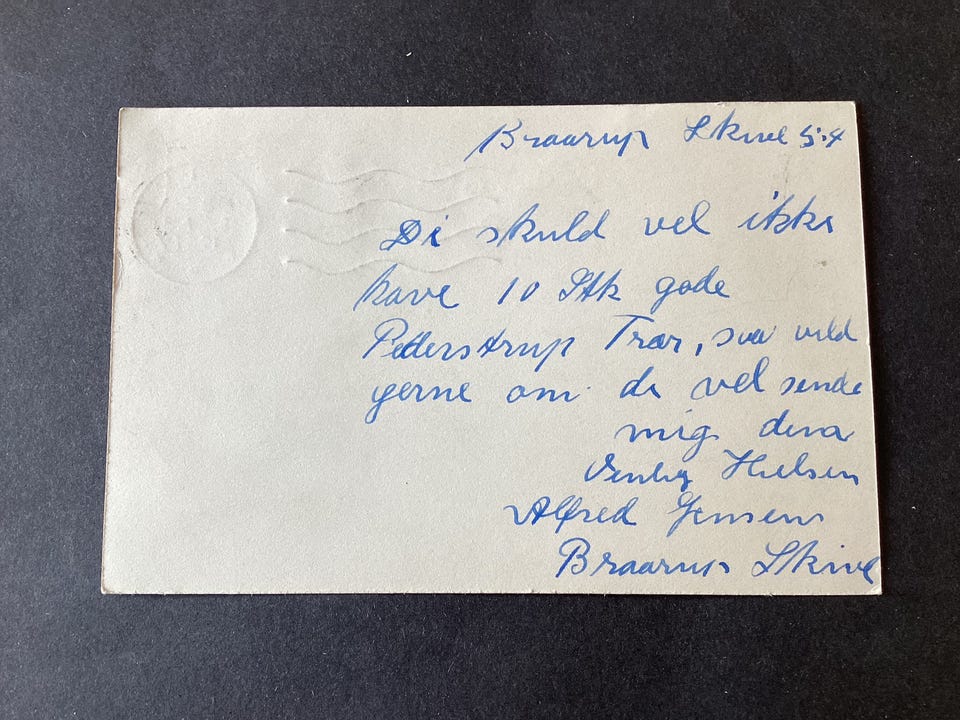 Braarup Skive 5.4
Di skuld vel ikke
have 10 Stk gode
Pederstrup Træer, saa vild
gerne om de vel sende
mig dem
Venlig Hilsen
Alfred Jensen
Braarup Skive